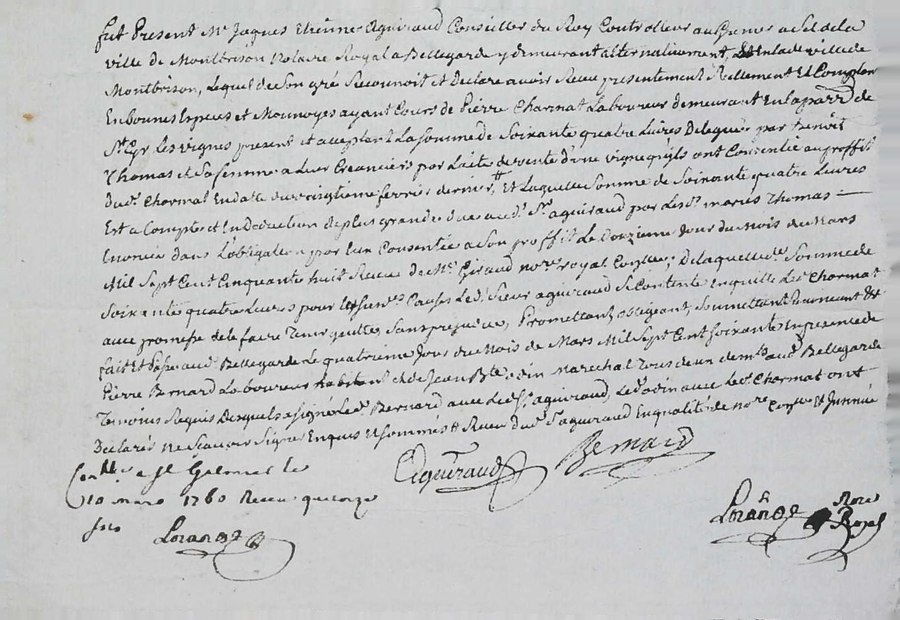 fut Present Mr Jaques Etienne Aguiraud Consiller du Roy Controlleur au Grenier a Sel de la
ville de Montbrison Notaire Royal a Bellegarde y demeurant alternativement, et en lade ville de
Montbrison, Lequel de Son gré Reconnoit et Declare avoir Receu presentement Reellement et Comptant
En bonnes Especes et Monnoyes ayant Cours de Pierre Charmat Laboureur demeurant En la parr. de
St. Cyr les vignes present et acceptant La Somme de Soixante quatre Livres Deleguée par Benoit
Thomas et Sa femme a Leur Creancier par L'acte de vente d'une vigne qu'ils ont Consentie au proffit
dud. Charmat En datte du vingtieme fevrier dernier, Et Laquelle Somme de Soixante quatre Livres
Est a Compte et En Deduction de plus grande due aud. Sr. aguiraud par Les d. mariés Thomas
Enoncée dans L'obligation par Eux Consentie a Son proffit Le Jour du Mois de Mars
Mil Sept Cent Cinquante huit Receue de Me. Giraud nore. royal ; De laquelle de. Somme de
Soixante quatre Livres pour Les Susd. Causes Led. Sieur aguiraud Se Contente En quitte Led. Charmat
avec promesse de le faire Tenir quitte, Sans prejudice, Promettant, obligeant, Soumettant, Renoncant &
fait et Passé aud. Bellegarde Le quatrieme Jour du Mois de Mars Mil Sept Cent Soixante En presence de
Pierre Bernard Laboureur habitant & de Jean Bte. odin Marechal Tous deux demts. aud. Bellegarde
Temoins Requis Desquels a Signé Led. Bernard avec Led. Sr. aguiraud, Led. odin avec Led. Charmat ont
Declaré Ne Scavoir Signer Enquis et Sommés & Receu dud. Sr aguiraud En qualité de nore. et
Aguiraud Bernard
Conllé. a St Galmier le
10 mars 1760 Receu quatorze
Lorange
Lorange Nore
Royal